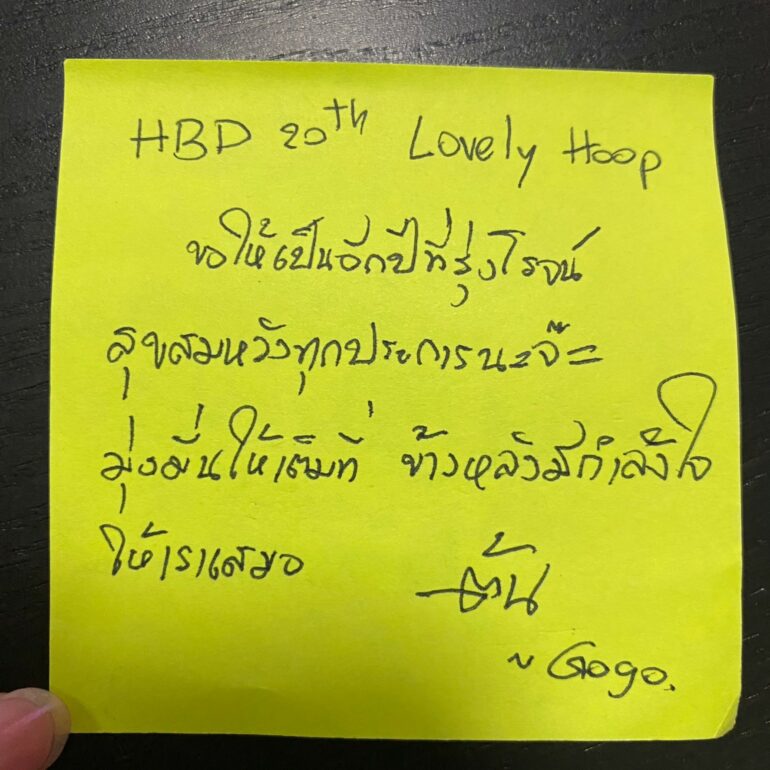 HBD 20th Lovely Hoop
ขอให้เป็นอีกปีที่รุ่งโรจน์
สุขสมหวังทุกประการนะจ๊ะ
มุ่งมั่นให้เต็มที่ ข้างหลังมีกำลังใจ
ให้เราเสมอ
ต้น
~ Gogo.